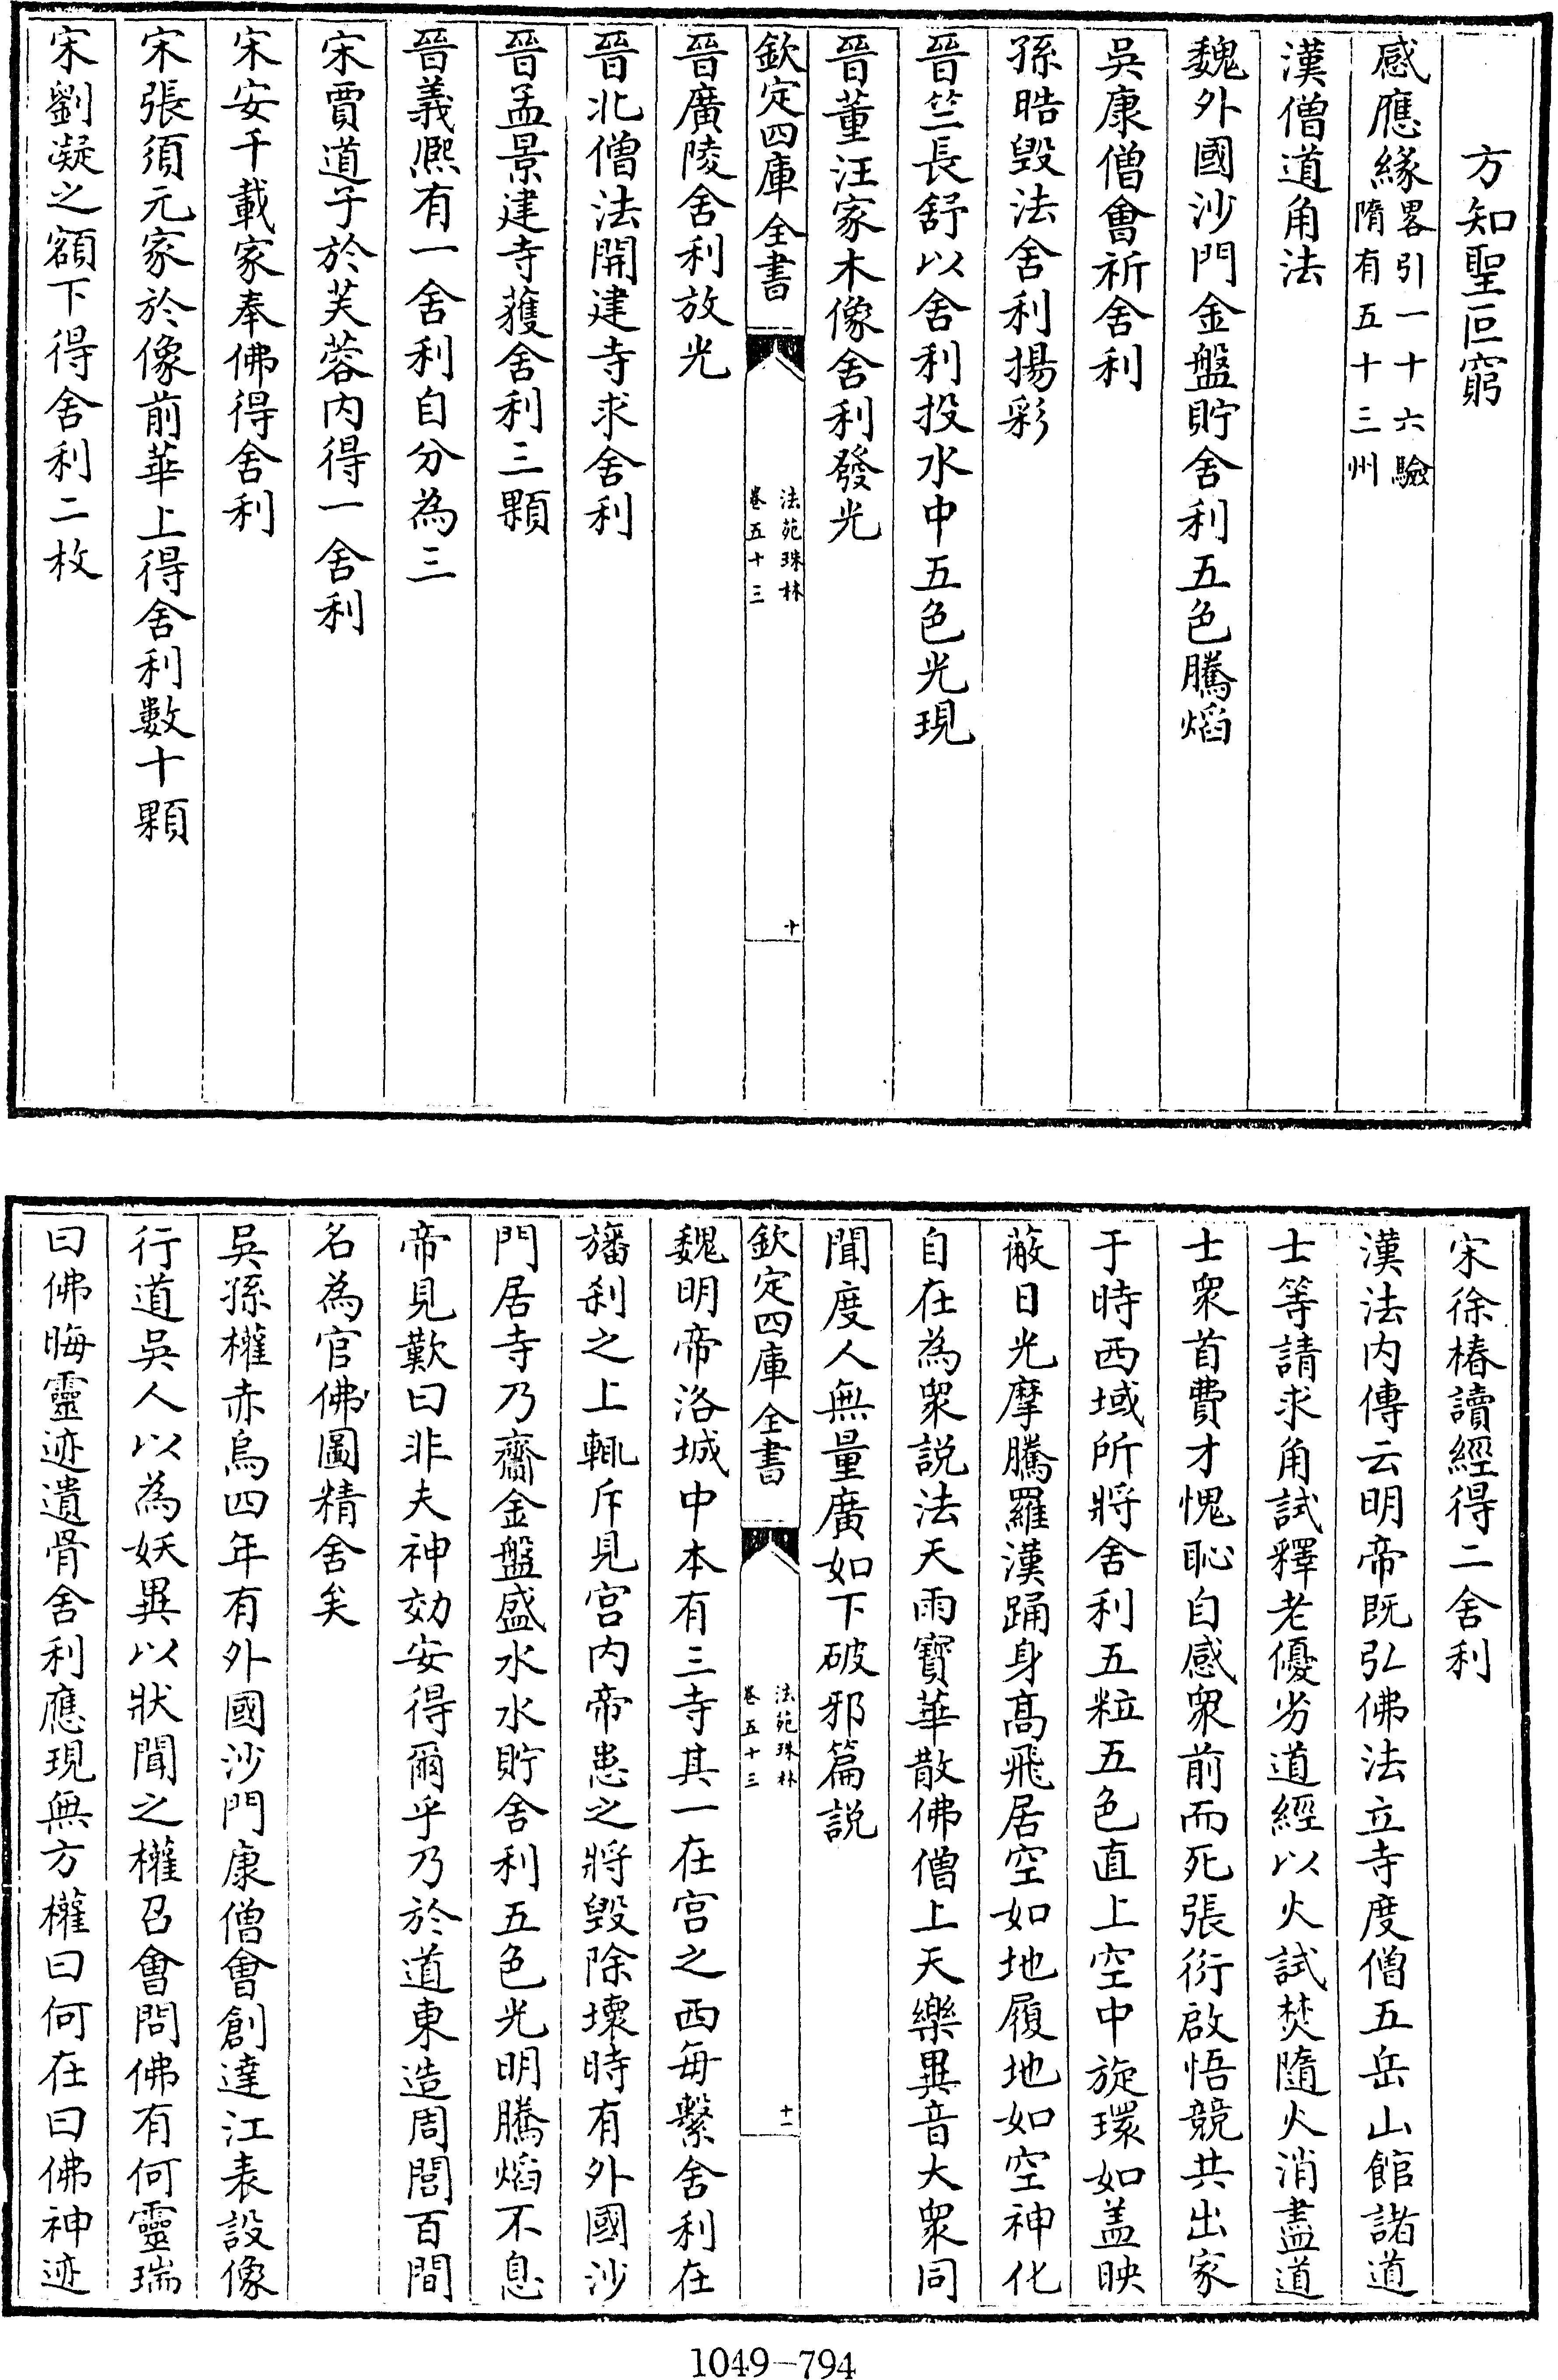 方知聖叵窮
感應緣畧引一十六驗隋有五十三州
漢僧道角法
魏外國沙門金盤貯舍利五色騰熖
吳康僧會祈舍利
孫晧毀法舍利揚彩
晉竺長舒以舍利投水中五色光現
晉董汪家木像舍利發光
欽定四庫全書
法苑珠林
卷五十三
十
晉廣陵舍利放光
晉北僧法開建寺求舍利
晉孟景建寺獲舍利三顆
晉義熈有一舍利自分為三
宋賈道子於芙蓉内得一舍利
宋安千載家奉佛得舍利
宋張須元家於像前華上得舍利數十顆
宋劉凝之額下得舍利二枚
宋徐椿讀經得二舍利
漢法内傳云明帝既弘佛法立寺度僧五岳山館諸道
士等請求角試釋老優劣道經以火試焚隨火消盡道
士衆首費才愧恥自感衆前而死張衍啟悟競共出家
于時西域所將舍利五粒五色直上空中旋環如盖映
蔽日光摩騰羅漢踊身髙飛居空如地履地如空神化
自在為衆説法天雨寳華散佛僧上天樂異音大衆同
聞度人無量廣如下破邪篇説
欽定四庫全書
法苑珠林
卷五十三
十一
魏明帝洛城中本有三寺其一在宫之西每繫舍利在
旛刹之上輒斥見宫内帝患之將毀除壞時有外國沙
門居寺乃齎金盤盛水水貯舍利五色光明騰熖不息
帝見歎曰非夫神効安得爾乎乃於道東造周閭百間
名為官佛圖精舍矣
吳孫權赤烏四年有外國沙門康僧會創達江表設像
行道吳人以為妖異以狀聞之權召會問佛有何靈瑞
曰佛晦靈迹遺骨舍利應現無方權曰何在曰佛神迹
1049-794